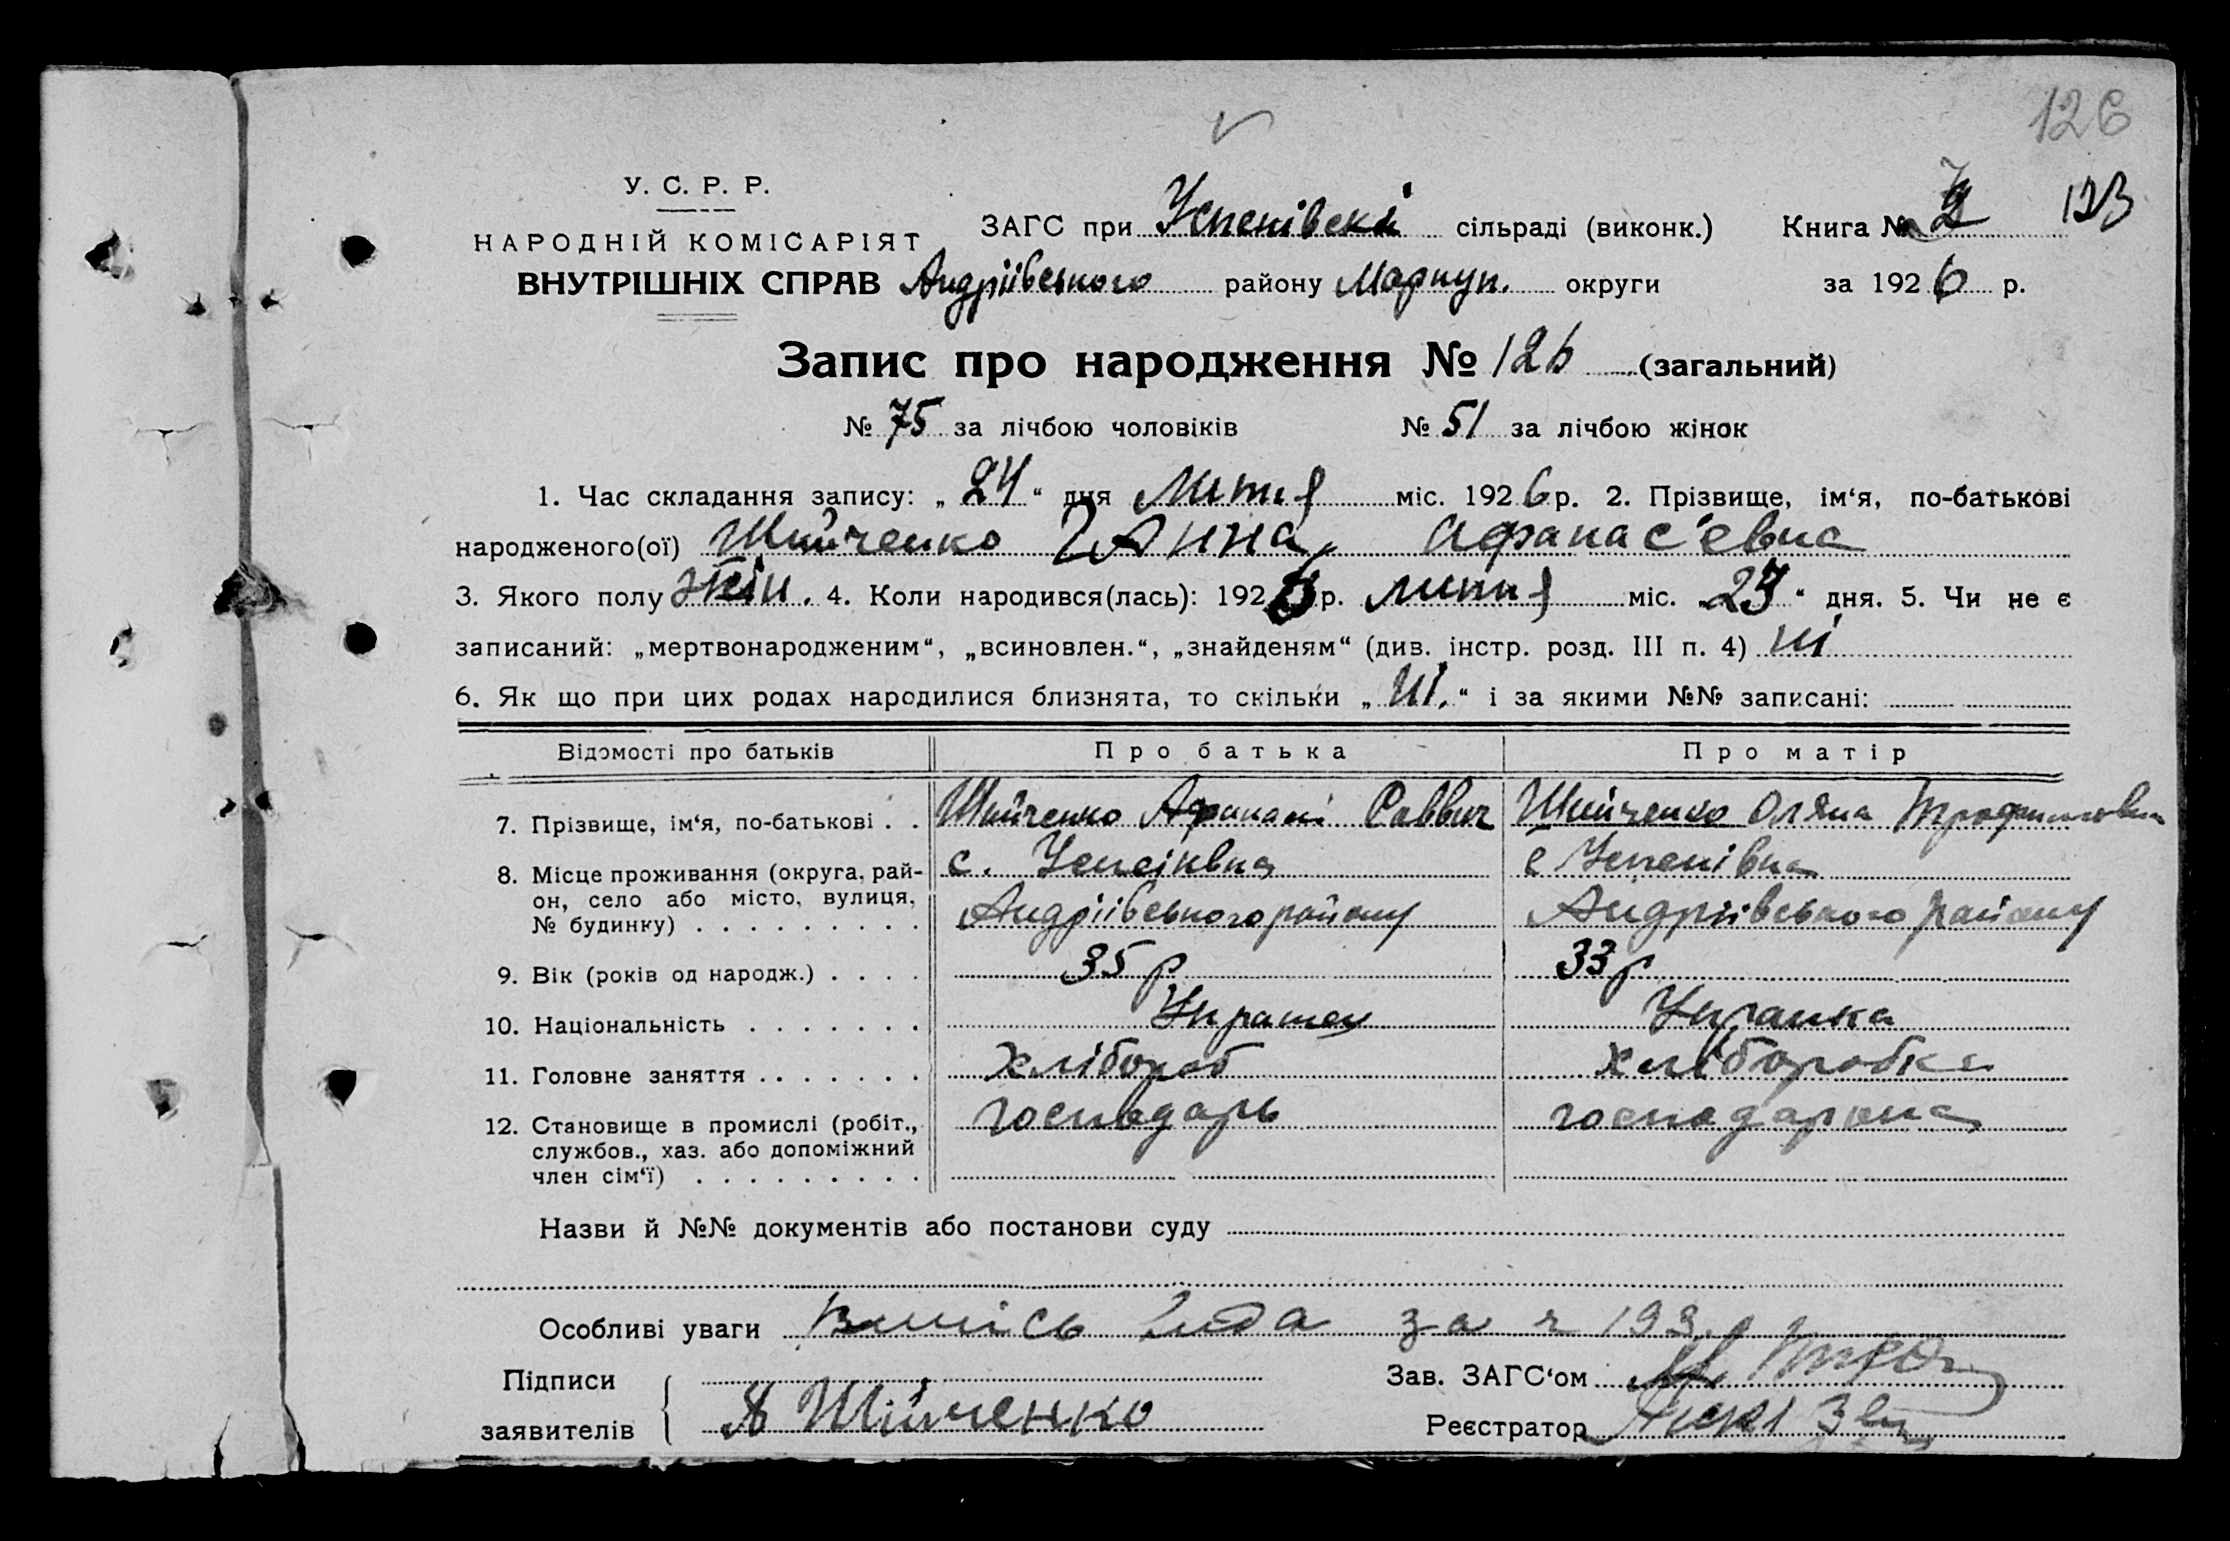 126
У. С. Р. Р.
НАРОДНІЙ КОМІСАРІЯТ
ВНУТРІШНІХ СПРАВ
ЗАГС при Успенівскі сільраді (виконк.) Книга № 2 123
Андріівського району Марюп. округи за 1926 р.
Запис про народження № 126 (загальний)
№ 75 за лічбою чоловіків № 51 за лічбою жінок
1. Час складання запису: „24“ дня Липня міс. 1926 р. 2. Прізвище, ім‘я, по-батькові
народженого(ої) Шийченко Анна Афанас'евна
3. Якого полу жін. 4. Коли народився(лась): 1926 р. липня міс. „23“ дня. 5. Чи не є
записаний: „мертвонародженим“, „всиновлен.“, „знайденям“ (див. інстр. розд. III п. 4) ні
6. Як що при цих родах народилися близнята, то скільки „ні.“ і за якими №№ записані:
Відомості про батьків Про батька Про матір
7. Прізвище, ім‘я, по-батькові . . Шийченко Афанасі Саввич Шийченко Оляна Трофимовна
8. Місце проживання (округа, рай- с. Успеінвка с Успенівка
он, село або місто, вулиця, Андріівського району Андріівського району
№ будинку) . . . . . . . . .
9. Вік (років од народж.) . . . . 35 р 33 р
10. Національність . . . . . . . Украінец Украінка
11. Головне заняття . . . . . . . Хлібороб Хлібооробка
12. Становище в промислі (робіт., господарь господарка
службов., хаз. або допоміжний
член сім‘ї) . . . . . . . . .
Назви й №№ документів або постанови суду
Особливі уваги за 193
Підписи
заявителів А Шійченко
Зав. ЗАГС‘ом
Реєстратор